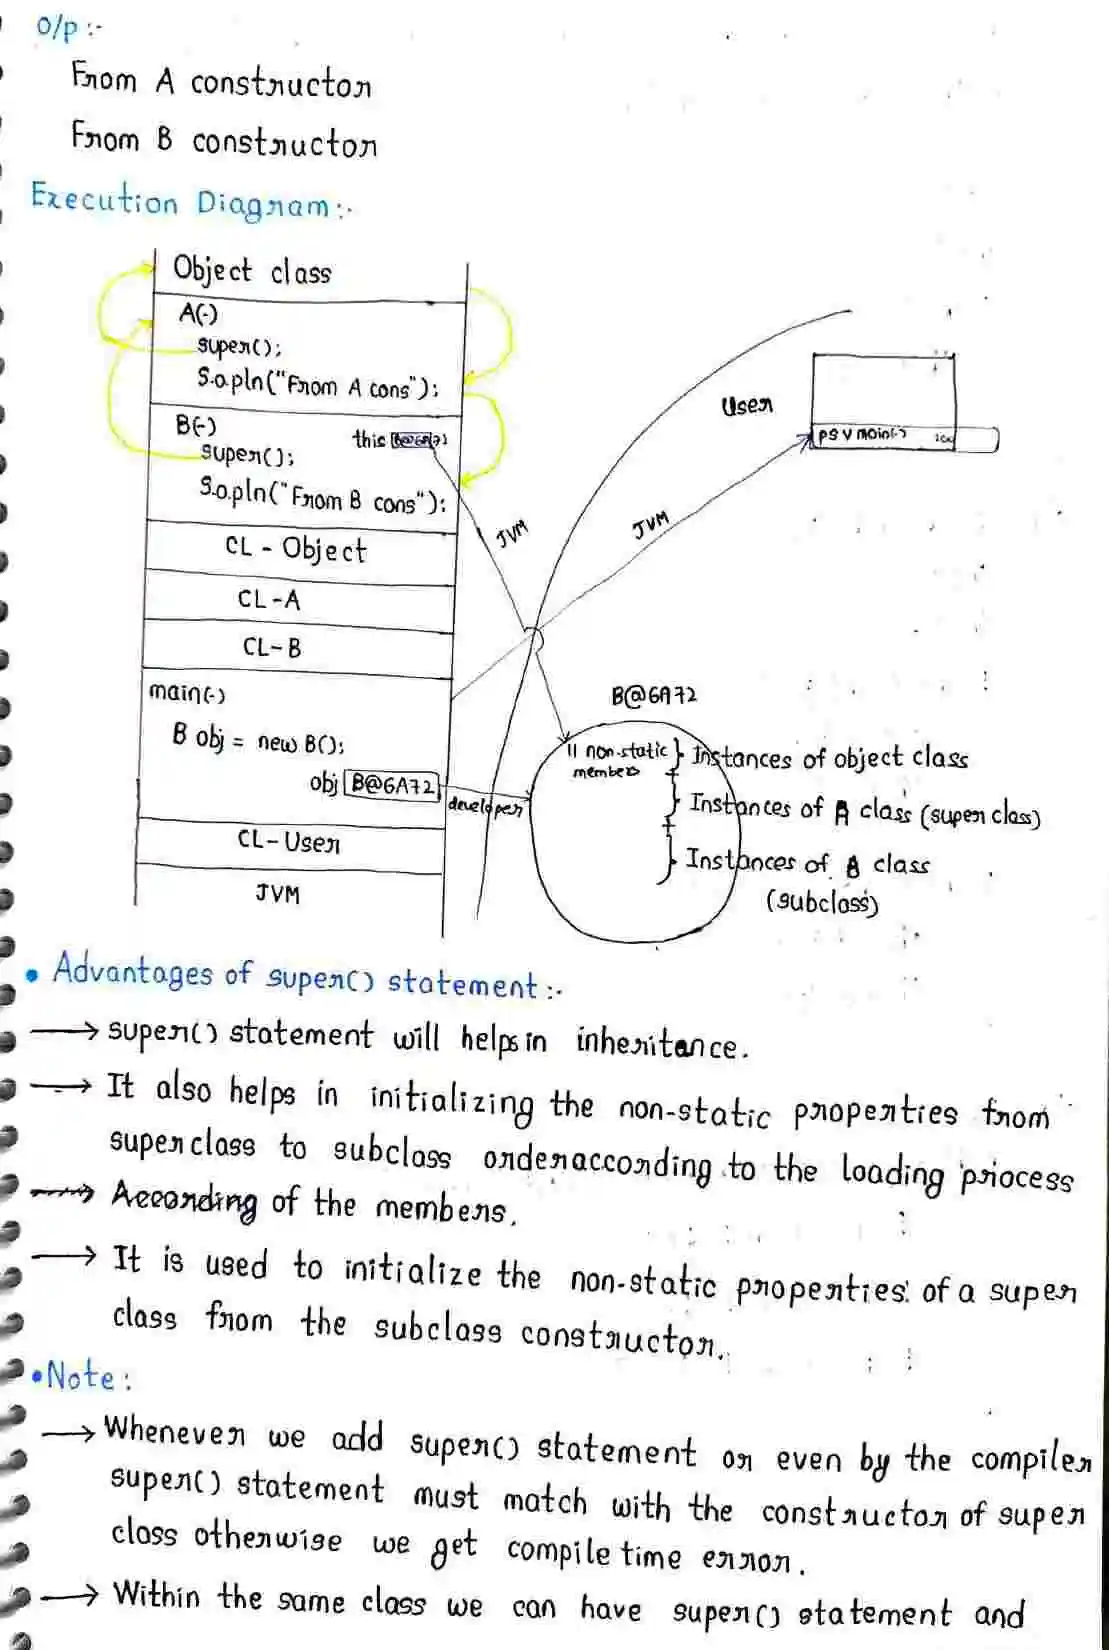 O/p :-
From A constructor
From B constructor
Execution Diagram :-
Object class
A(-)
super();
S.o.pln("From A cons");
B(-)
this
super();
S.o.pln("From B cons");
CL - Object
CL - A
CL - B
main(-)
B obj = new B();
obj B@6A72
CL - User
JVM
JVM
JVM
developer
User
psv main(-)
B@6A72
non-static
members
Instances of object class
Instances of A class (super class)
Instances of B class
(subclass)
• Advantages of super() statement :-
→ super() statement will helps in inheritance.
→ It also helps in initializing the non-static properties from
superclass to subclass order according to the loading process
→ According of the members.
→ It is used to initialize the non-static properties of a super
class from the subclass constructor.
• Note :
→ Whenever we add super() statement or even by the compiler
super() statement must match with the constructor of super
class otherwise we get compile time error.
→ Within the same class we can have super() statement and